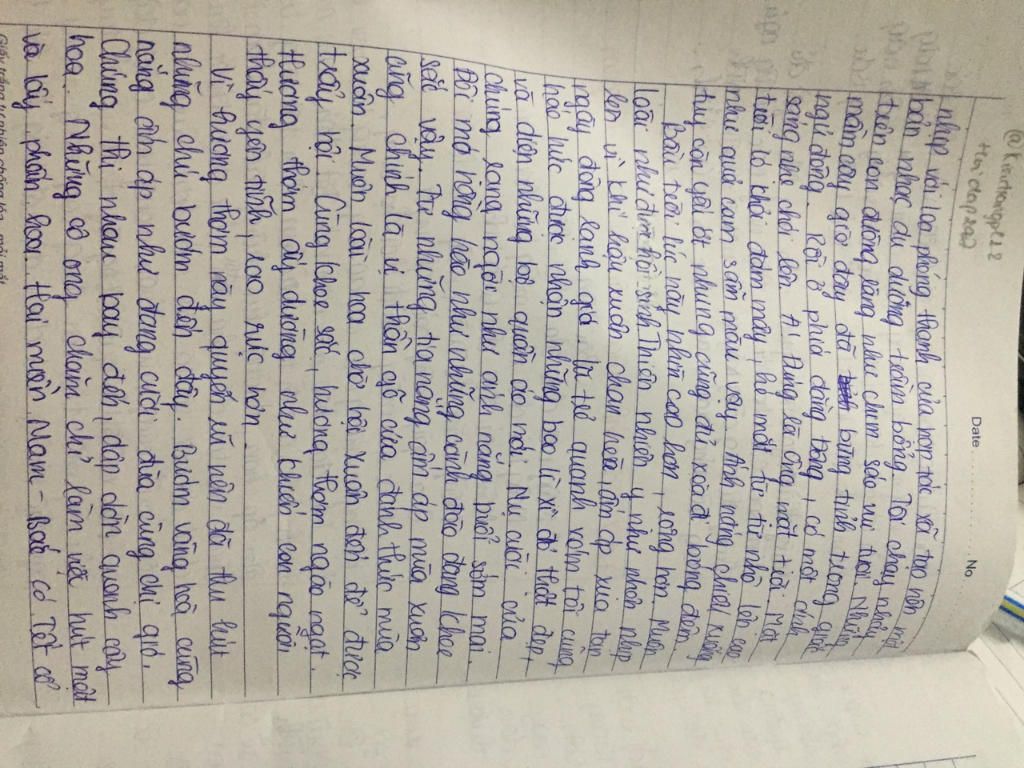 @Kimthangpt22
Hỏi đáp 247
Date
No.
nhịp với loa phóng thanh của hợp tác xã tạo nên một
bản nhạc du dương trầm bổng. Tôi chạy nhảy
trên con đường làng như chim sáo vui tươi. Những
mầm cây giờ đây đã bừng tỉnh tương quanh
ngủ đông. Rồi ở phía đằng đông, có một ánh
sáng nhẹ chợt lên. A! Đúng là ông mặt trời. Mặt
trời ló khỏi đám mây, hé một từ từ nhô lên cao
như quả cam sẫm màu vậy. Ánh nắng chiếu xuống
tuy còn yếu ớt nhưng cũng đủ xoá đi bóng đêm.
Bầu trời lúc này nhìn cao hơn, rộng hơn. Muôn
loài như được hồi sinh. Thiên nhiên y như nhộn nhịp
lên vì khí hậu xuân chan hoà, ấm áp xua tan
ngày đông lạnh giá. Lũ trẻ quanh xóm tôi cũng
háo hức được nhận những bao lì xì đỏ thắt đẹp
và diện những bộ quần áo mới. Nụ cười của
chúng rạng ngời như ánh nắng buổi sớm mai.
Đôi má hồng hào như những cánh đào đang khoe
sắc vậy. Từ những tia nắng ấm áp mùa xuân
cũng chính là vị thần gõ cửa đánh thức mùa
xuân. Muôn loài hoa chờ hội xuân đến để được
trẩy hội. Cùng khoe sắc, hương thơm ngào ngạt.
Hương thơm ấy dường như khiến con người
thấy yên tĩnh, rạo rực hơn.
Vì hương thơm này quyến rũ nên đã thu hút
những chú bướm đến đây. Bướm vàng hoà cùng
nắng ấm áp như đang cười đùa cùng chị gió.
Chúng thi nhau bay đến, dập dờn quanh cây
hoa. Những cô ong chăm chỉ làm việc hút mật
và lấy phấn hoa. Hai miền Nam - Bắc có Tết cổ